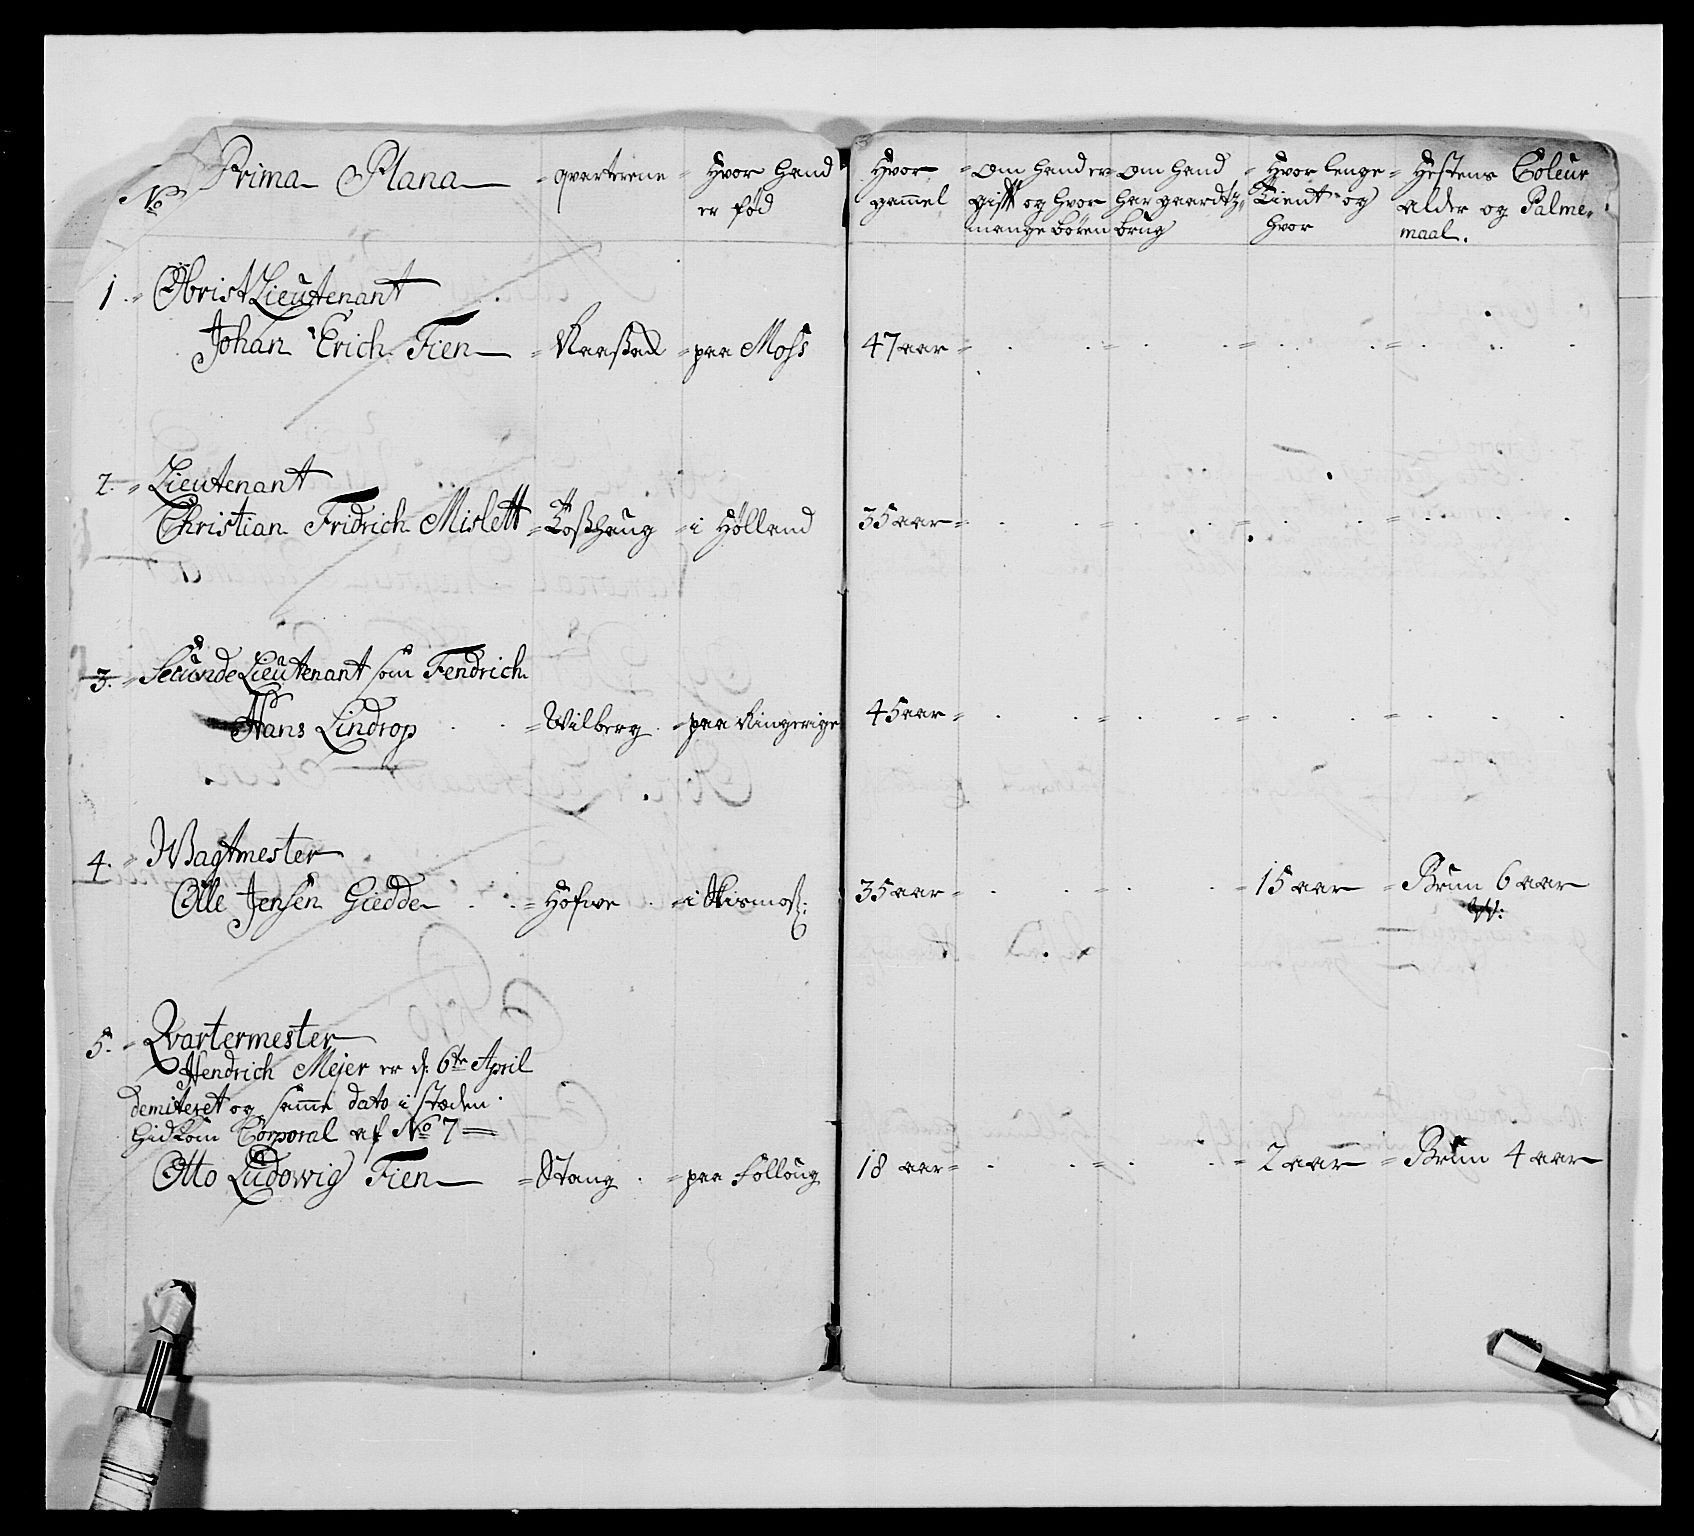 No Prima Plana = qvarterene = Hvor hand er fød Hvor gammel = Om hand er gift og hvor mange børen Om hand har gaardtz brug = Hvor lenge tient og hvor = Hestens Coleur alder og Palme maal.
1. = Obrist Lieutenant
Johan Erich Fien = Raaßad = paa Moss 47 aar =
2. = Lieutenant
Christian Fridrich Mislett = Toßhaug = i Hølland 35 aar =
3. = Secunde Lieutenant som Fendrich
Hans Lindrop = Wilberg = paa Ringerige 45 aar =
4. = Wagtmester
Olle Jensen Giedde = Hofwe = i Skismoß: 35 aar = = 15 aar = Brun 6 aar
5. = Qvartermester
Hendrich Mejer er d: 6te April
demiteret og samme dato i stæden
Gidkom Corporal af No 7 =
Otto Ludowig Fien = Stang = paa Folloug 18 aar = = 2 aar = Brun 4 aar